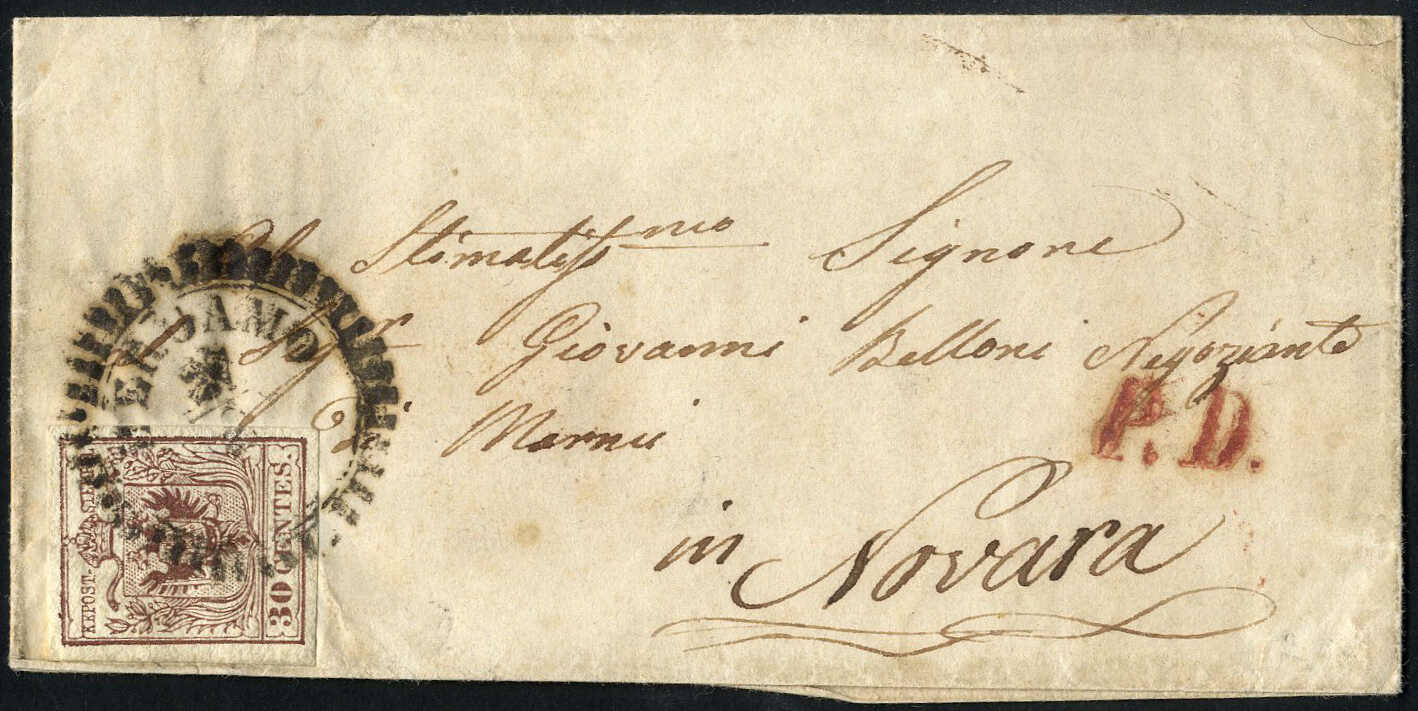 Stimatissmo Signore
Il Sigr Giovanni Belloni Negoziante
Di
in Novara
P. D.
BERGAMO
KKPOST-STEMPEL
30 CENTES.